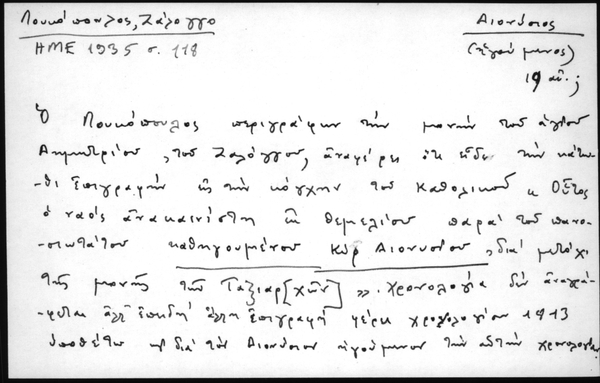 Λουκόπουλος, Ζάλογγο
Διονύσιος
ΗΜΕ 1935 σ. 118
(ηγούμενος)
19 αι. ;
Ὁ Λουκόπουλος περιγράφων τὴν μονὴν τοῦ ἁγίου
Δημητρίου, τοῦ Ζαλόγγου, ἀναφέρει ὅτι εἶδε τὴν κάτω-
-θι ἐπιγραφὴν εἰς τὴν κόγχην τοῦ καθολικοῦ « Οὗτος
ὁ ναὸς ἀνακαινίστη ἐκ θεμελίου παρὰ τοῦ πανο-
-σιωτάτου καθηγουμένου Κὺρ Διονυσίου, διὰ
τῆς μονῆς τῶν Ταξιαρ[χῶν] ». χρονολογία δὲν ἀναγρά-
-φεται ἀλλ' ἐπειδὴ ἄλλη ἐπιγραφὴ φέρει χρονολογίαν 1913
ὑποθέτω διὰ τὸν Διονύσιον ἡγούμενον τὴν αὐτὴν χρονολογίαν